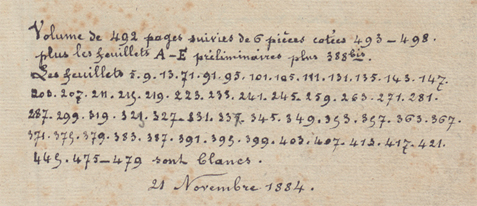 Volume de 492 pages suivies de 6 pièces cotées 493-498.
plus les feuillets A-E préliminaires plus 388bis.
Les feuillets 5.9.13.71.91.95.101.105.111.131.135.143.147.
203.207.211.215.219.223.233.241.245.259.263.271.281.
287.299.319.321.327.331.337.345.349.353.357.363.367.
371.375.379.383.387.391.395.399.403.407.413.417.421.
445.475-479 sont blancs.
21 Novembre 1884.